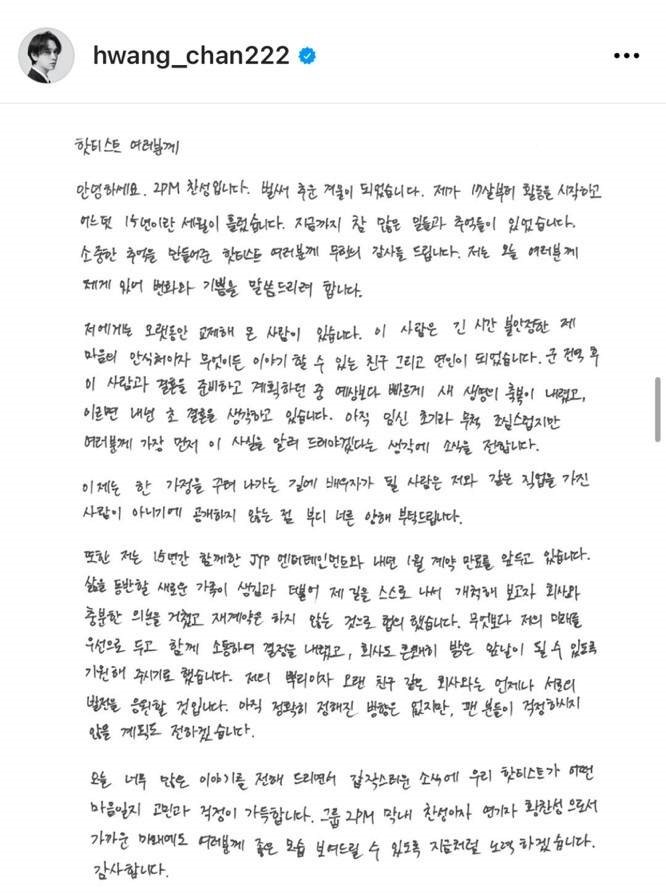 hwang_chan222
핫티스트 여러분께
안녕하세요. 2PM 찬성입니다. 벌써 추운 겨울이 되었습니다. 제가 17살부터 활동을 시작하고
어느덧 15년이란 세월이 흘렀습니다. 지금까지 참 많은 일들과 추억들이 있었습니다.
소중한 추억을 만들어준 핫티스트 여러분께 무한의 감사를 드립니다. 저는 오늘 여러분께
제게 있어 변화와 기쁨을 말씀드리려 합니다.
저에게는 오랫동안 교제해 온 사람이 있습니다. 이 사람은 긴 시간 불안정한 제
마음의 안식처이자 무엇이든 이야기 할 수 있는 친구 그리고 연인이 되었습니다. 군 전역 후
이 사람과 결혼을 준비하고 계획하던 중 예상보다 빠르게 새 생명의 축복이 내렸고,
이르면 내년 초 결혼을 생각하고 있습니다. 아직 임신 초기라 무척 조심스럽지만
여러분께 가장 먼저 이 사실을 알려 드려야겠다는 생각에 소식을 전합니다.
이제는 한 가정을 꾸려 나가는 길에 배우자가 될 사람은 저와 같은 직업을 가진
사람이 아니기에 공개하지 않는 점 부디 너른 양해 부탁드립니다.
또한 저는 15년간 함께한 JYP 엔터테인먼트와 내년 1월 계약 만료를 앞두고 있습니다.
삶을 동반할 새로운 가족이 생김과 더불어 제 길을 스스로 나서 개척해 보고자 회사와
충분한 의논을 거쳤고 재계약은 하지 않는 것으로 협의 했습니다. 무엇보다 저의 미래를
우선으로 두고 함께 소통하며 결정을 내렸고, 회사도 콘텐히 밝은 앞날이 될 수 있도록
기원해 주시기로 했습니다. 저의 뿌리이자 오랜 친구 같은 회사와는 언제나 서로의
발전을 응원할 것입니다. 아직 정확히 정해진 방향은 없지만, 팬 분들이 걱정하시지
않을 계획도 전하겠습니다.
오늘 너무 많은 이야기를 전해 드리면서 갑작스러운 소식에 우리 핫티스트가 어떤
마음일지 고민과 걱정이 가득합니다. 그룹 2PM 막내 찬성이자 연기자 황찬성으로서
가까운 미래에도 여러분께 좋은 모습 보여드릴 수 있도록 지금처럼 노력 하겠습니다.
감사합니다.